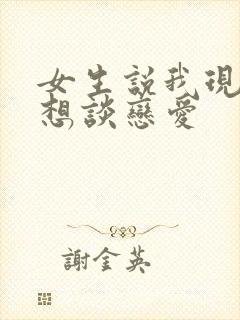 女生説我現
想談戀愛
謝金英